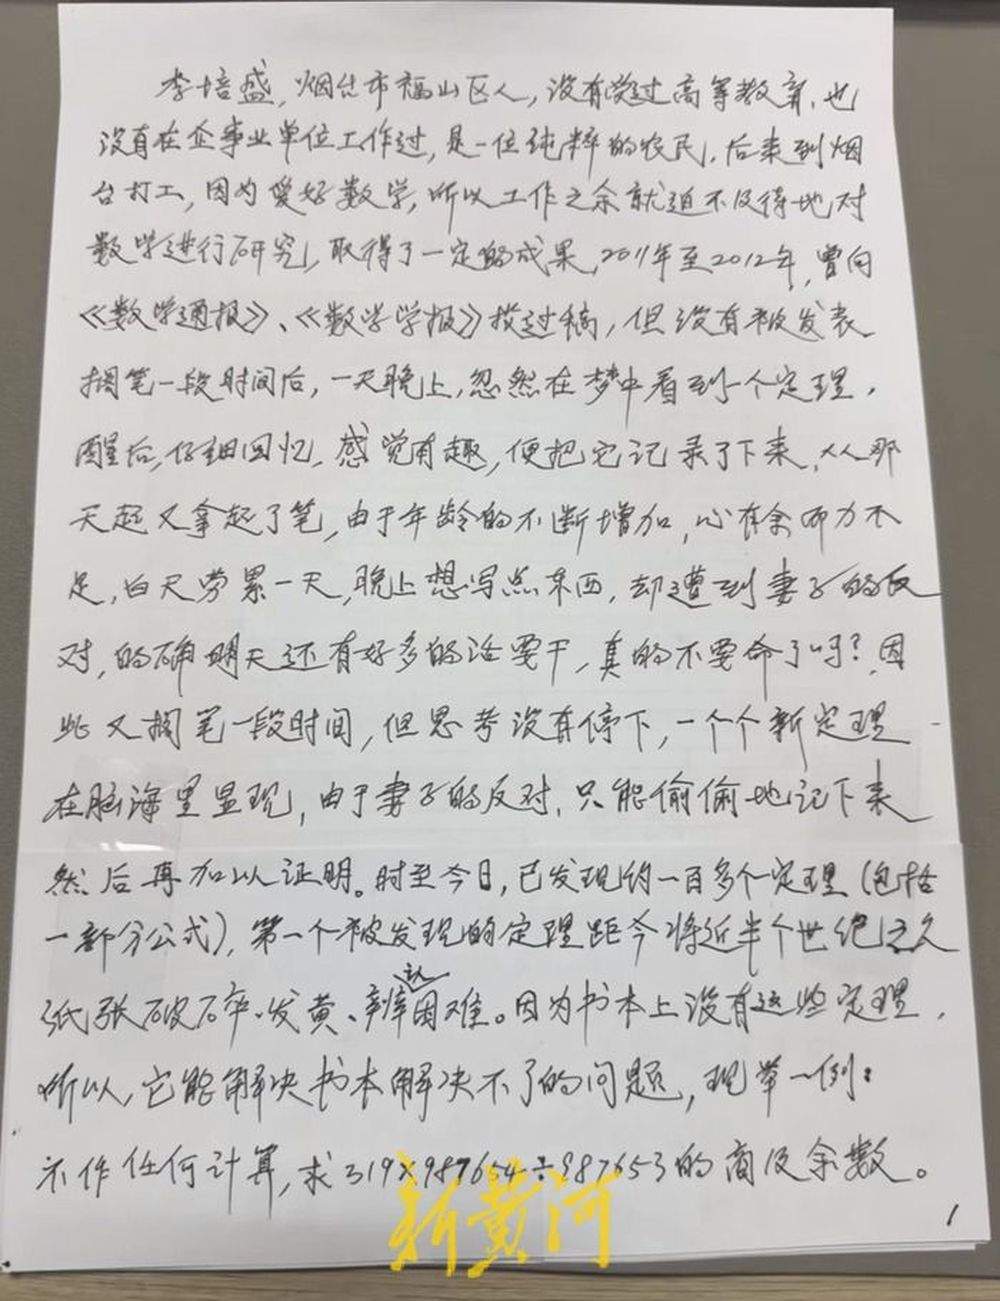 李培盛,烟台市福山区人,没有受过高等教育,也
没有在企事业单位工作过,是一位纯粹的农民,后来到烟
台打工,因为爱好数学,所以工作之余就迫不及待地对
数学进行研究,取得了一定的成果,2011年至2012年,曾向
《数学通报》、《数学学报》投过稿,但没有被发表
搁笔一段时间后,一天晚上,忽然在梦中看到一个定理,
醒后,仔细回忆,感觉有趣,便把它记录了下来,从那
天起又拿起了笔,由于年龄的不断增加,心有余而力不
足,白天劳累一天,晚上想写点东西,却遭到妻子的反
对,的确明天还有好多的活要干,真的不要命了吗?因
此又搁笔一段时间,但思考没有停下,一个个新定理
在脑海里显现,由于妻子的反对,只能偷偷地记下来
然后再加以证明。时至今日,已发现约一百多个定理(包括
一部分公式),第一个被发现的定理距今将近半个世纪之久
纸张破碎、发黄、辨认困难。因为书本上没有这些定理,
所以,它能解决书本解决不了的问题,现举一例:
不作任何计算,求319×987654÷987653的商及余数。
新黄河
1